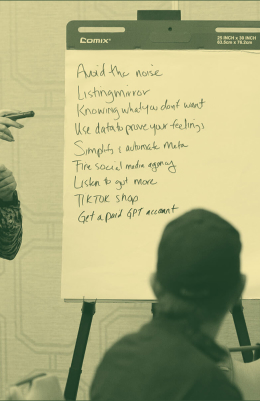 COMIX®
25 INCH x 36 INCH
63.5cm x 76.2cm
Avoid the noise
Listingmirror
Knowing what you dont want
Use data to prove your feelings
Simplify & automate Meta
Fire social media agency
Listen to gut more
TIKTOK shop
Get a paid GPT account